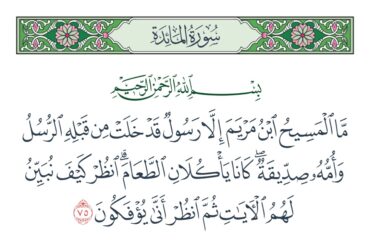 سُورَةُ المَائِدَةِ
بِسْمِ ٱللَّهِ ٱلرَّحْمَٰنِ ٱلرَّحِيمِ
مَّا ٱلْمَسِيحُ ٱبْنُ مَرْيَمَ إِلَّا رَسُولٌ قَدْ خَلَتْ مِن قَبْلِهِ ٱلرُّسُلُ
وَأُمُّهُۥ صِدِّيقَةٌ ۖ كَانَا يَأْكُلَانِ ٱلطَّعَامَ ۗ ٱنظُرْ كَيْفَ نُبَيِّنُ
لَهُمُ ٱلْآيَٰتِ ثُمَّ ٱنظُرْ أَنَّىٰ يُؤْفَكُونَ ٧٥